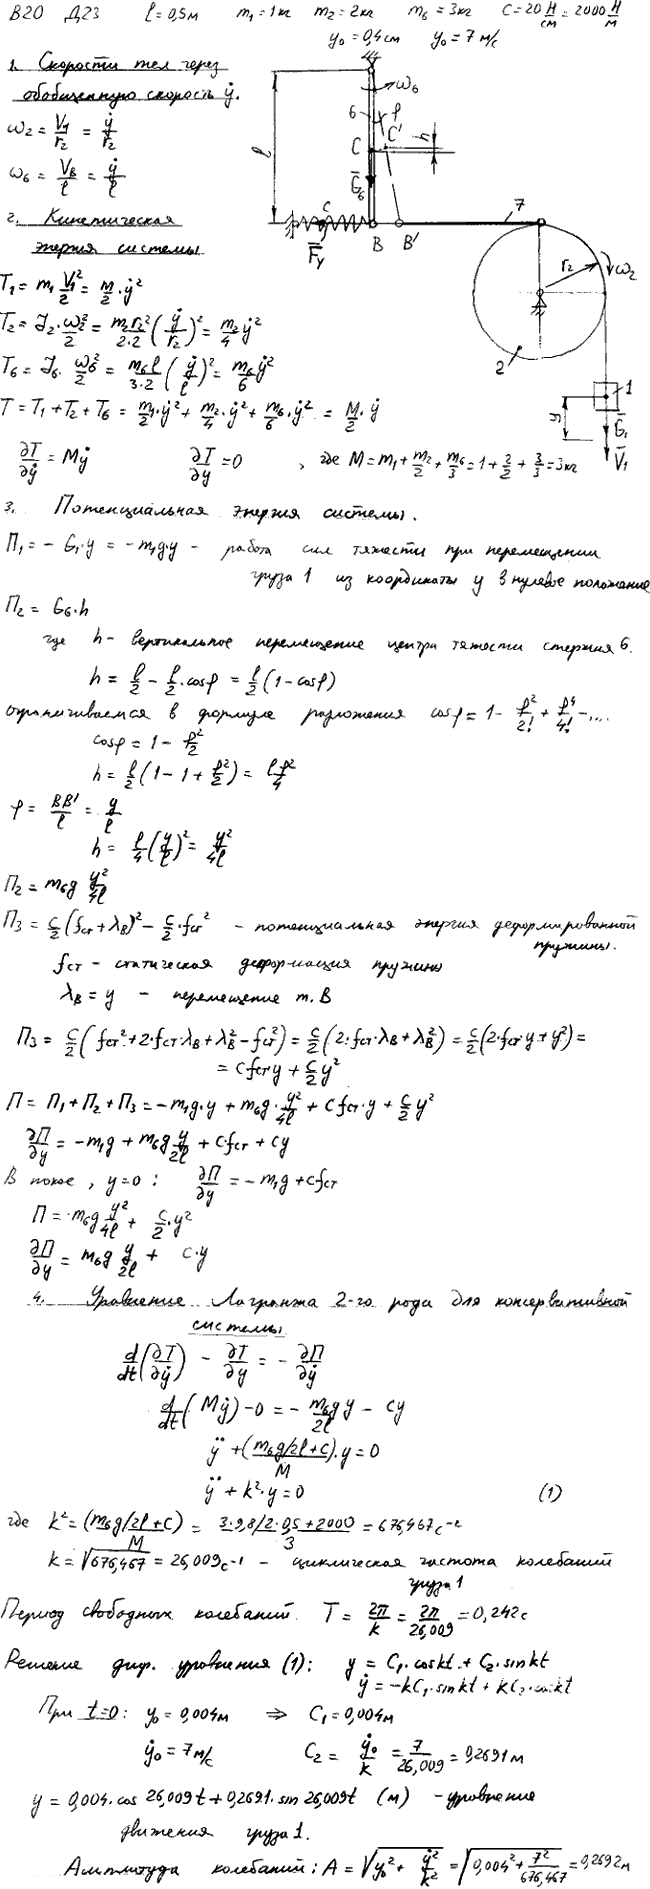 В20 Д23 l = 0,5м m₁ = 1кг m₂ = 2кг m₆ = 3кг C = 20 Н/см = 2000 Н/м
y₀ = 0,4см ẏ₀ = 7 м/с
1. Скорости тел через
обобщенную скорость ẏ.
ω₂ = V₁/r₂ = ẏ/r₂
ω₆ = V_B/l = ẏ/l
2. Кинетическая
энергия системы
T₁ = m₁ V₁²/2 = m/2 · ẏ²
T₂ = J₂ · ω₂²/2 = m₂r₂²/2·2 (ẏ/r₂)² = m₂/4 ẏ²
T₆ = J₆ · ω₆²/2 = m₆l/3·2 (ẏ/l)² = m₆/6 ẏ²
T = T₁ + T₂ + T₆ = m₁/2 · ẏ² + m₂/4 · ẏ² + m₆/6 · ẏ² = M/2 · ẏ
∂T/∂ẏ = Mẏ ∂T/∂y = 0 , где M = m₁ + m₂/2 + m₆/3 = 1 + 2/2 + 3/3 = 3кг
l 6 φ ω₆ C C' h G₆ C F_y B B' 7 r₂ ω₂ 2 1 y G₁ V₁
3. Потенциальная энергия системы.
П₁ = - G₁·y = - m₁g·y - работа сил тяжести при перемещении
груза 1 из координаты y в нулевое положение
П₂ = G₆·h
где h - вертикальное перемещение центра тяжести стержня 6.
h = l/2 - l/2 · cosφ = l/2 (1 - cosφ)
ограничиваемся в формуле разложения cosφ = 1 - φ²/2! + φ⁴/4! - ....
cosφ = 1 - φ²/2
h = l/2 (1 - 1 + φ²/2) = lφ²/4
φ = BB'/l = y/l
h = l/4 (y/l)² = y²/4l
П₂ = m₆g y²/4l
П₃ = c/2 (fст + λ_B)² - c/2 · fст² - потенциальная энергия деформированной
пружины.
fст - статическая деформация пружины
λ_B = y - перемещение т. В
П₃ = c/2 (fст² + 2·fст·λ_B + λ_B² - fст²) = c/2 (2·fст·λ_B + λ_B²) = c/2 (2·fст·y + y²) =
= cfст y + c/2 y²
П = П₁ + П₂ + П₃ = - m₁g·y + m₆g · y²/4l + cfст·y + c/2 y²
∂П/∂y = - m₁g + m₆g y/2l + cfст + cy
В покое, y = 0 : ∂П/∂y = - m₁g + cfст
П = m₆g y²/4l + c/2 · y²
∂П/∂y = m₆g y/2l + c·y
4. Уравнение Лагранжа 2-го рода для консервативной
системы
d/dt (∂T/∂ẏ) - ∂T/∂y = - ∂П/∂y
d/dt (Mẏ) - 0 = - m₆g/2l y - cy
ÿ + (m₆g/2l + c)/M · y = 0
ÿ + k²·y = 0 (1)
где k² = (m₆g/2l + c)/M = 3·9,8/2·0,5 + 2000/3 = 676,467 с⁻²
k = √676,467 = 26,009 с⁻¹ - циклическая частота колебаний
груза 1
Период свободных колебаний. T = 2π/k = 2π/26,009 = 0,242с
Решение диф. уравнения (1): y = C₁·coskt + C₂·sinkt
ẏ = -kC₁·sinkt + kC₂·coskt
При t=0: y₀ = 0,004м ⇒ C₁ = 0,004м
ẏ₀ = 7м/с C₂ = ẏ₀/k = 7/26,009 = 0,2691 м
y = 0,004·cos 26,009t + 0,2691·sin 26,009t (м) - уравнение
движения груза 1.
Амплитуда колебаний: A = √y₀² + ẏ²/k² = √0,004² + 7²/676,467 = 0,2692м